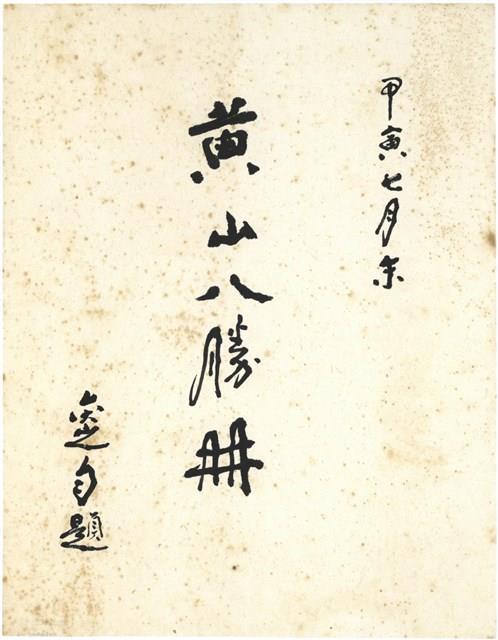 甲寅七月
黄山八勝冊
自題